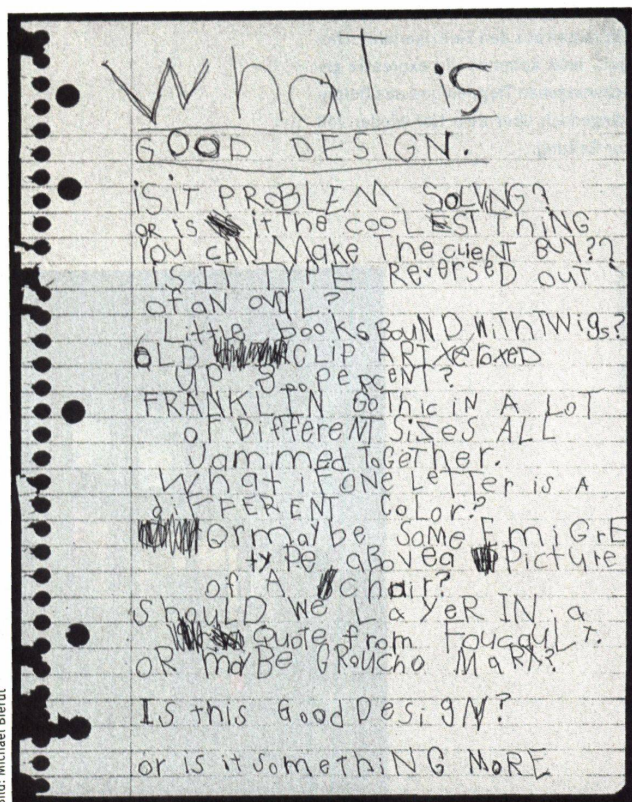 What is
GOOD DESIGN.
iS iT PRoBLEM SoLViNG?
oR is it the cooLEST ThiNG
You cAN Make The cLieNT BUY??
IS IT TYPE ReveRseD ouT
of aN ovaL?
Little books BouND WiTh TWigs?
OLD CLIP ART Xeroxed
UP 800 peRceNT?
FRANKLIN GoThic iN A LoT
oF DiffereNT SiZes ALL
Jammed ToGeTher.
What if oNe LeTTer is A
diFFERENT CoLor?
Or maybe Some EmiGrE
type above a Picture
of A chair?
ShouLD We LayeR IN a
Quote from FoucauLT.
oR mayBe GRoucho MaRX?
Is this GooD DesigN?
or is it SomethiNG MoRE
Bild: Michael Bierut